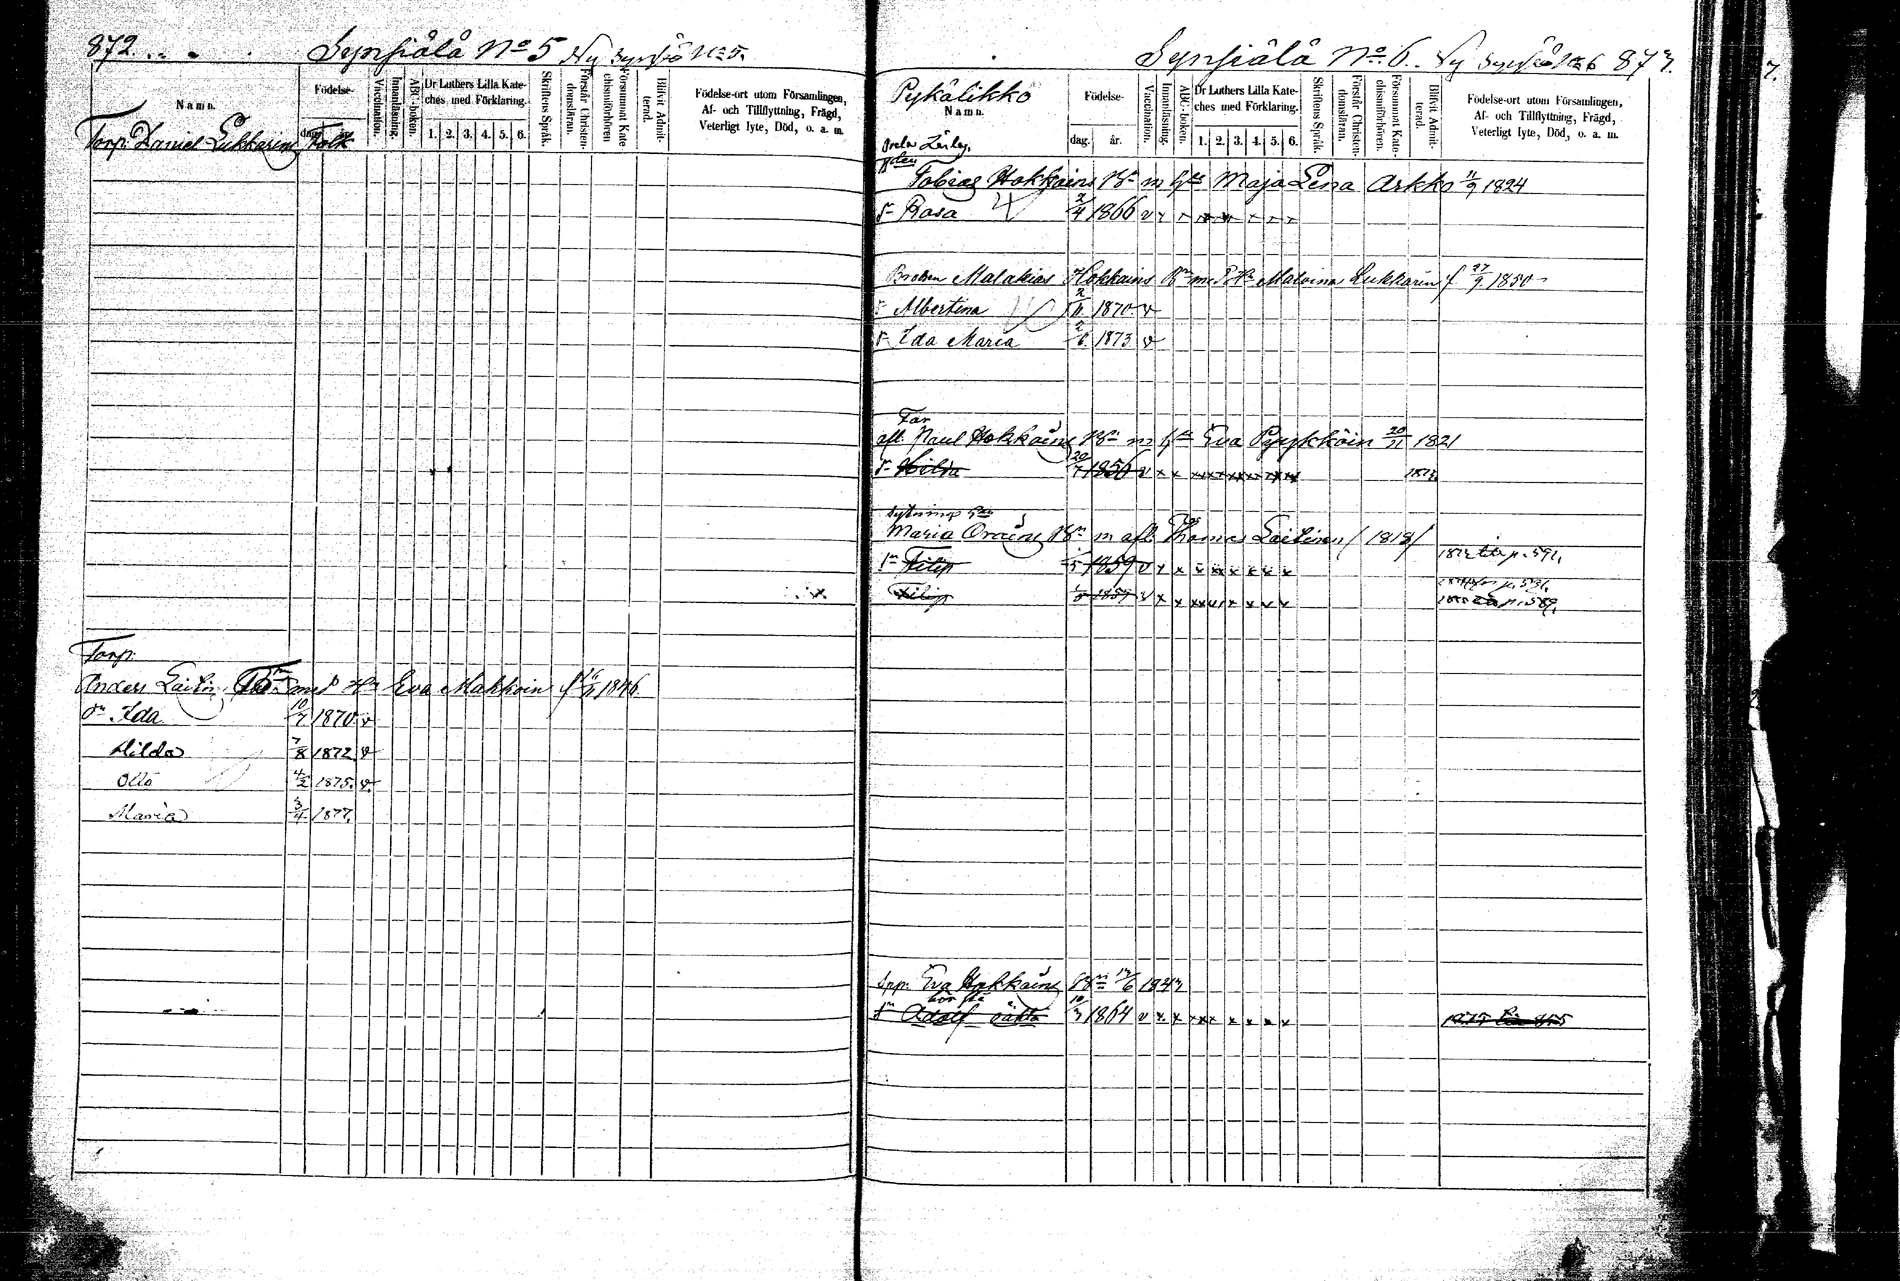 872.
Synsiälä No 5 Ny Synsiö No 5.
Namn.
Födelse-
dag. år.
Vaccination.
Innanläsning.
ABC-boken.
Dr Luthers Lilla Kate-
ches med Förklaring.
1. 2. 3. 4. 5. 6.
Skriftens Språk.
Förstår Christen-
domsläran.
Försummat Kate-
chismiförhören
Blifvit Admit-
terad.
Födelse-ort utom Församlingen,
Af- och Tillflyttning, Frägd,
Veterligt lyte, Död, o. a. m.
Torp. Daniel Lukkarins Folk
Torp.
Anders Laitin med Hu Eva Makkoin f 1846.
dr Ida 10/7 1870. v
Hilda 7/8 1872. v
Otto 4/2 1875. v.
Maria 3/4 1877.
Synsiälä No 6. Ny Synsiö No 6 873.
Pykälikkö
Namn.
Födelse-
dag. år.
Vaccination.
Innanläsning.
ABC-boken.
Dr Luthers Lilla Kate-
ches med Förklaring.
1. 2. 3. 4. 5. 6.
Skriftens Språk.
Förstår Christen-
domsläran.
Försummat Kate-
chismiförhören.
Blifvit Admit-
terad.
Födelse-ort utom Församlingen,
Af- och Tillflyttning, Frägd,
Veterligt lyte, Död, o. a. m.
Tobias Hokkains Bn m hu Maja Lena Arkko 11/9 1824
dr Rosa 2/4 1866 v
Brodren Malakias Hokkains Bn med Hu Malvina Lukkarin f. 27/9 1850
Albertina 2/11 1870. v
dr Ida Maria 2/6 1873 v
Far
afl. Paul Hokkains Bn m hu Eva Pyykköin 20/11 1821
dr Hilda 20/7 1856 v x x
sytninge
Maria Orains Bn m afl. Thomas Laitinen (1818)
sn Filip 1859 v x x
p. 591.
Filip 1859 v x x
p. 589.
Spp. Eva Hokkains 1847
sn Adolf 10/3 1864 v x x